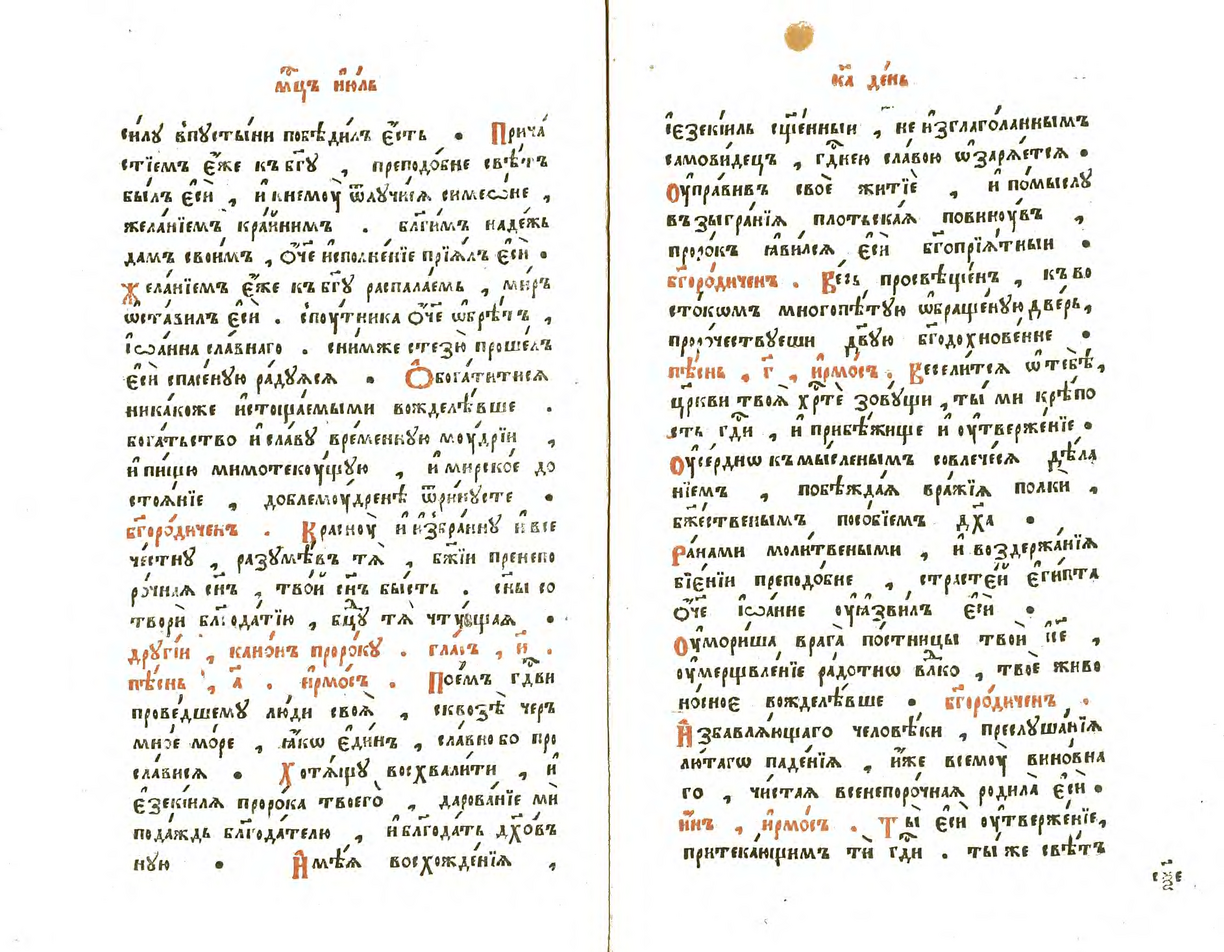 мц҃ъ і҆ю́ль
си́лу в̾пусты́ни побѣди́лъ є҆́сть . Прича́
стїемъ є҆́же къ бг҃у , преподо́бне свѣ́тъ
бы́лъ є҆сѝ , и҆ кнемоу̀ ѿлучи́сѧ симеѡ́не ,
жела́нїемъ кра́йнимъ . бл҃ги́мъ наде́жь
дамъ свои́мъ , ѻ҆́ч҃е и҆сполне́нїе прїѧ́лъ є҆сѝ .
Жела́нїемъ є҆́же къ бг҃у распала́емь , ми́ръ
ѡ҆ста́вилъ є҆сѝ . споу́тника ѻ҆́ч҃е ѡ҆брѣ́тъ ,
і҆ѡа́нна сла́внаго . сни́мже стезю̀ проше́лъ
є҆сѝ спасе́ную ра́дуѧсѧ . Ѻ҆богати́тисѧ
ника́коже и҆стоща́емыми вожделѣ́вше .
бога́тьство и҆ сла́ву вре́менную моу́дрїи ,
и҆ пи́щю мимотекоу́щую , и҆ мирско́е до
стоѧ́нїе , доблемоу́дренѣ ѿри́нусте .
бг҃оро́диченъ . Красноу̀ и҆ и҆збра́нну и҆ все
че́стну , разумѣ́въ тѧ̀ , бж҃їи пренепо
ро́чнаѧ сн҃ъ , тво́й сн҃ъ бы́сть . сн҃ы со
творѝ бл҃года́тїю , бц҃у тѧ̀ чту́щаѧ .
другі́и , кано́нъ проро́ку . гла́съ , и҃ .
пѣ́снь , а҃ . і҆рмо́съ . Пое́мъ гд҃ви
прове́дшему лю́ди своѧ̀ , сквозѣ̀ чер
мно́е мо́ре , ꙗ҆́кѡ є҆ди́нъ , сла́вно бо про
сла́висѧ . Хотѧ́щу восхвали́ти , и҆
є҆зекі́илѧ проро́ка твоего̀ , дарова́нїе мѝ
пода́ждь бл҃года́телю , и҆ бл҃года́ть дх҃о́в
ную . И҆мѣ́ѧ восхожде́нїѧ ,
к҃а де́нь
і҆езекі́иль сщ҃е́нныи , неи҆зглаго́ланнымъ
самови́децъ , гд҃нею сла́вою ѡ҆зарѧ́етсѧ .
Оу҆пра́вивъ своѐ житїѐ , и҆ по́мыслу
възыгра́нїѧ пло́тьскаѧ повиноу́въ ,
проро́къ ꙗ҆ви́лсѧ є҆сѝ бг҃опрїѧ́тныи .
бг҃оро́диченъ . Ве́сь просвѣще́нъ , къ во
сто́кѡмъ многопѣ́тую ѡ҆браще́ную две́рь ,
проро́чествуеши дв҃ую бг҃одохнове́нне .
пѣ́снь , г҃ , і҆рмо́съ . Весели́тсѧ ѡ҆ тебѣ̀ ,
цр҃кви твоѧ̀ хр҃тѐ зову́щи , ты̀ ми крѣ́по
сть гд҃и , и҆ прибѣ́жище и҆ оу҆твержє́нїе .
Оу҆се́рднѡ къ мы́сленымъ совлече́сѧ дѣ́ла
нїемъ , побѣжда́ѧ вра́жїѧ полкѝ ,
бж҃е́ственымъ посо́бїемъ дх҃а .
Ра́нами моли́твеными , и҆ воздержа́нїѧ
бїе́нїи преподо́бне , страсте́й є҆ги́пта
ѻ҆́ч҃е і҆ѡа́нне оу҆ꙗзви́лъ є҆сѝ .
Оу҆мори́ша врага̀ по́стницы твоѝ сѐ ,
оу҆мерщвле́нїе ра́дотнѡ вл҃ко , твоѐ живо
но́сное вожделѣ́вше . бг҃оро́диченъ .
И҆збавлѧ́ющаго человѣ́ки , преслуша́нїѧ
лю́тагѡ паде́нїѧ , и҆́же всемоу̀ вино́вна
го , чи́стаѧ всенепоро́чнаѧ родила̀ є҆сѝ .
и҆́нъ , і҆рмо́съ . Ты̀ є҆сѝ оу҆твержє́нїе ,
притека́ющимъ тѝ гд҃и . ты́ же свѣ́тъ